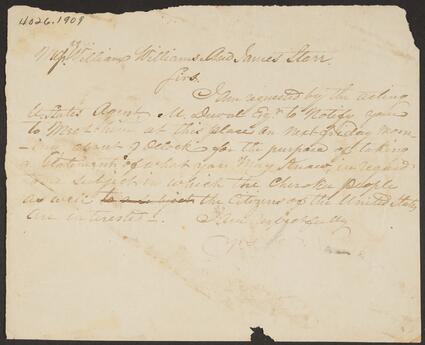 4026.1909
Messrs William Williams And James Starr
Sirs
I am requested by the acting
U States Agent M. Duval Esqr to Notify you
to Meet him at this place on next Friday morn
-ing about 9 Oclock for the purpose of taking
a Statement of what you May Know, in regard
to a subject in which the Cherokee people
as well to a subject the Citizens of the United States
are interested.
I am respectfully